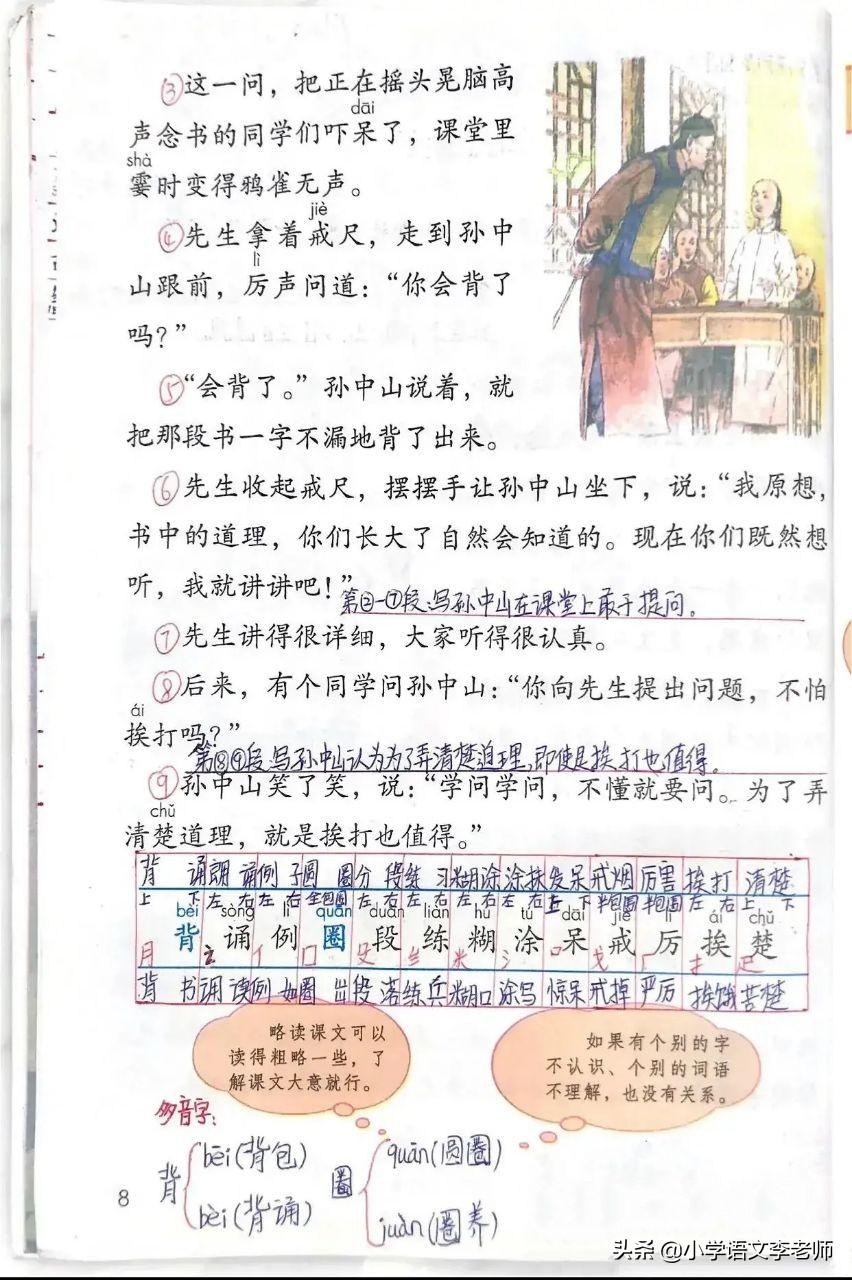 ③这一问，把正在摇头晃脑高
dāi
声念书的同学们吓呆了，课堂里
shà
霎时变得鸦雀无声。
jiè
④先生拿着戒尺，走到孙中
lì
山跟前，厉声问道：“你会背了
吗？”
⑤“会背了。”孙中山说着，就
把那段书一字不漏地背了出来。
⑥先生收起戒尺，摆摆手让孙中山坐下，说：“我原想，
书中的道理，你们长大了自然会知道的。现在你们既然想
听，我就讲讲吧！”
第②-⑦段，写孙中山在课堂上敢于提问。
⑦先生讲得很详细，大家听得很认真。
⑧后来，有个同学问孙中山：“你向先生提出问题，不怕
ái
挨打吗？”
第⑧⑨段，写孙中山认为为了弄清楚道理，即使是挨打也值得。
⑨孙中山笑了笑，说：“学问学问，不懂就要问。为了弄
chǔ
清楚道理，就是挨打也值得。”
背诵 朗诵 例子 圆圈 分段 练习 糊涂 涂抹 发呆 戒烟 厉害 挨打 清楚
上下 左右 左右 全包围 左右 左右 左右 左右 上下 半包围 半包围 左右 上下
bèi sòng lì quān duàn liàn hú tú dāi jiè lì ái chǔ
背 诵 例 圈 段 练 糊 涂 呆 戒 厉 挨 楚
月 讠 亻 囗 殳 纟 米 氵 口 戈 厂 扌 疋
背书 诵读 例如 圈出 段落 练兵 糊口 涂写 惊呆 戒掉 严厉 挨饿 苦楚
略读课文可以
读得粗略一些，了
解课文大意就行。
如果有个别的字
不认识、个别的词语
不理解，也没有关系。
多音字：
背 bēi（背包） bèi（背诵）
圈 quān（圆圈） juàn（圈养）
8
头条 @小学语文李老师